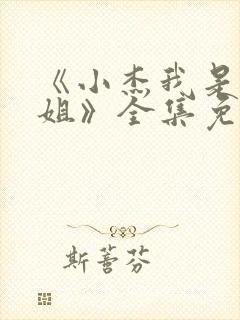 《小杰我是
姐》全集免
斯蕾芬